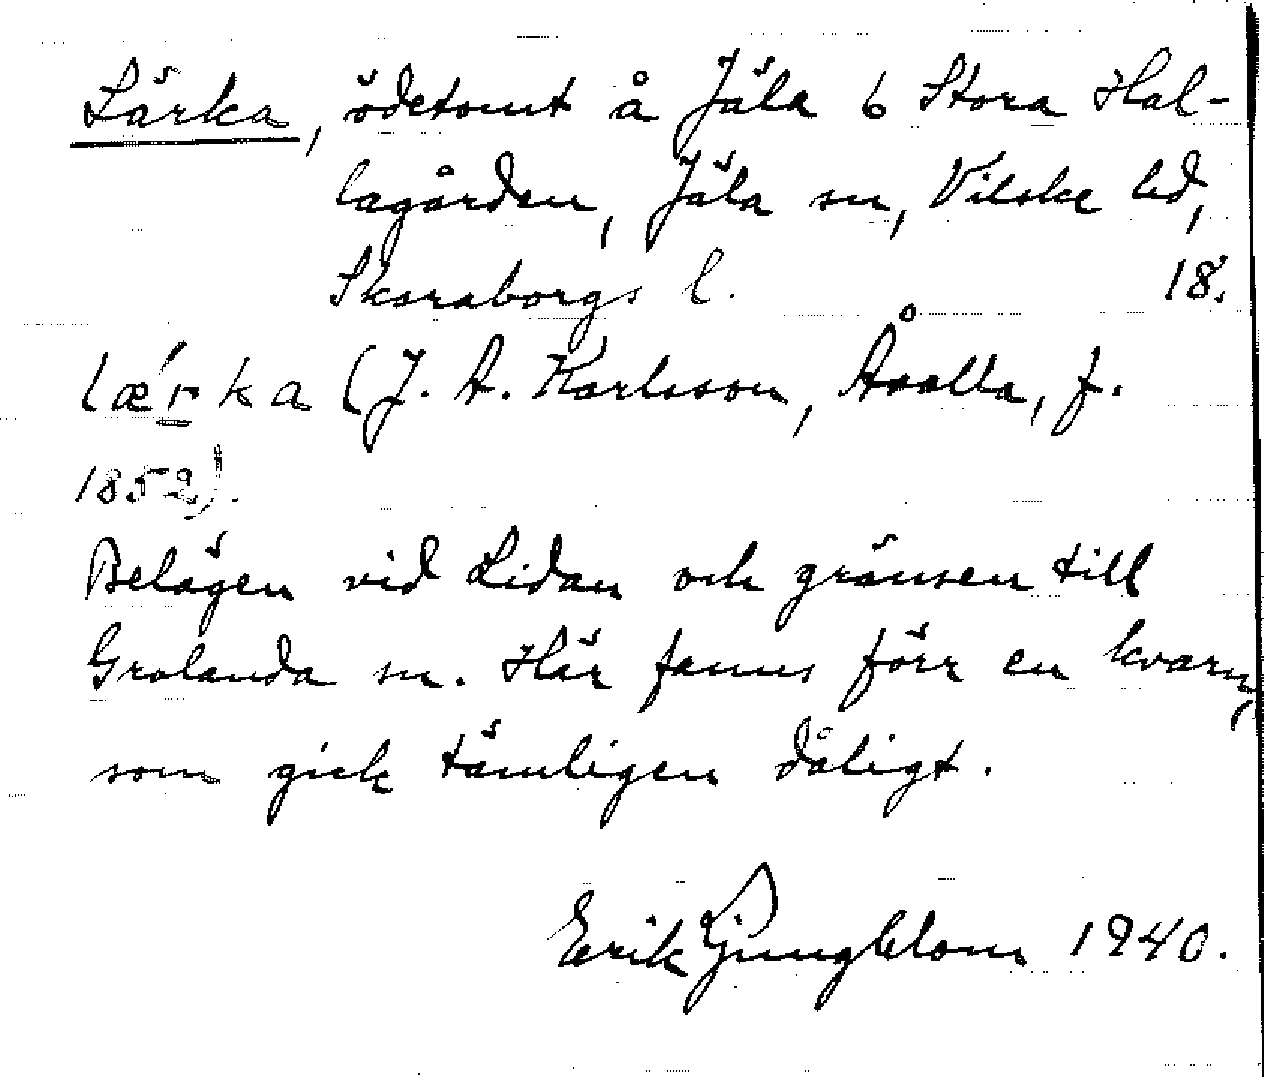 Lärka, ödetomt å Jäla 6 Stora Hal-
lagården, Jäla sn, Vilske hd,
Skaraborgs l. 18.
lǽrka (J. A. Karlsson, Åvalla, f.
1852).
Belägen vid Lidan och gränsen till
Grolanda sn. Här fanns förr en kvarn,
som gick tämligen dåligt.
Erik Ljungblom 1940.